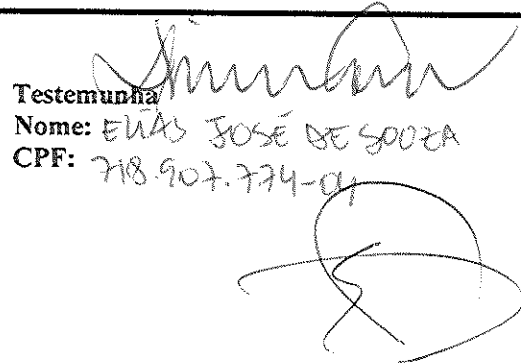 Testemunha
Nome: ELIAS JOSÉ DE SOUZA
CPF: 718.907.774-04